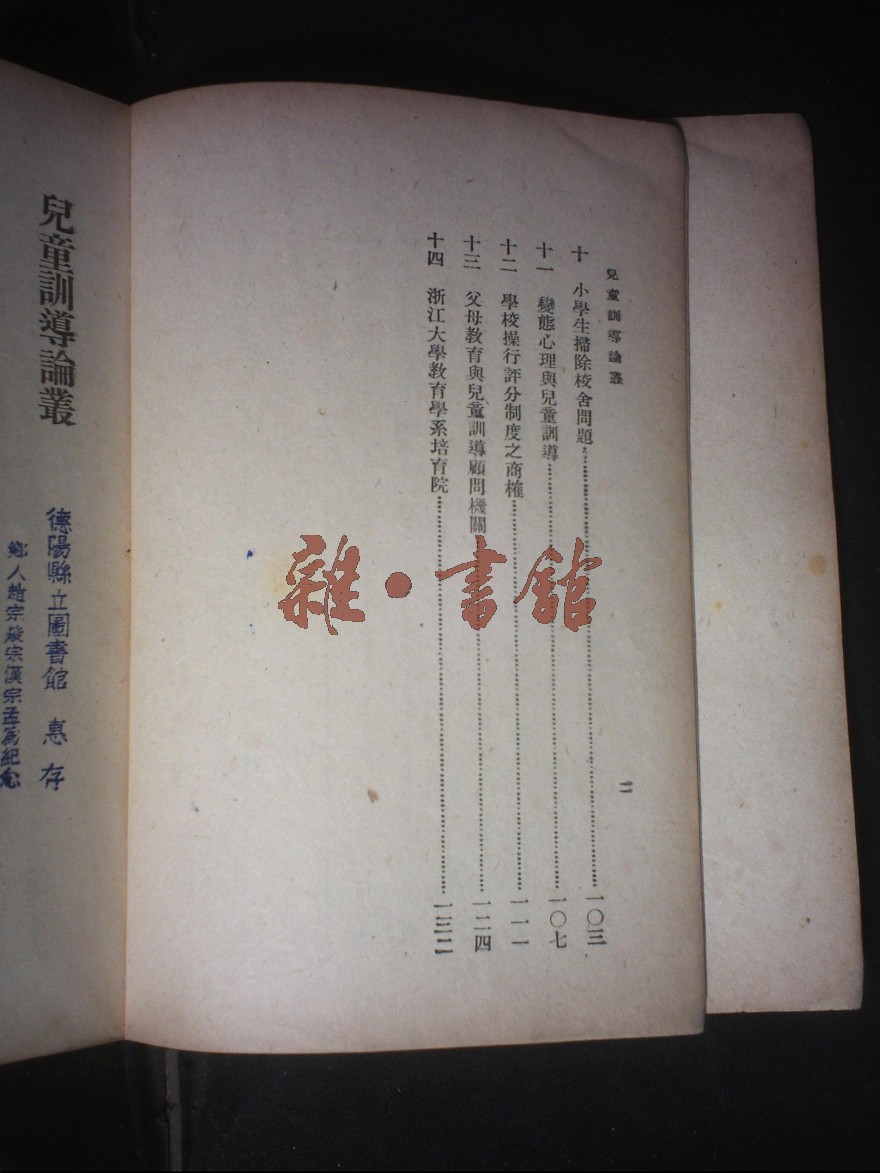 兒童訓導論叢
二
十 小學生掃除校舍問題……一〇三
十一 變態心理與兒童訓導……一〇七
十二 學校操行評分制度之商榷……一一一
十三 父母教育與兒童訓導顧問機關……一二四
十四 浙江大學教育學系培育院……一三二
兒童訓導論叢
德陽縣立圖書館 惠存
人趙宗宗漢宗孟紀念
雜·書館